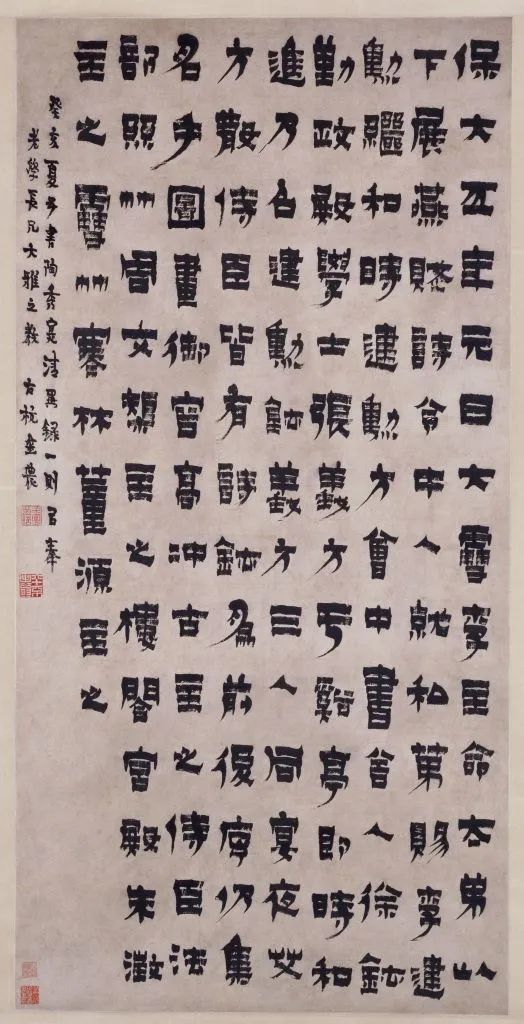 保大五年元日大雪李主命太弟以
下展燕賦詩令中人就和第賜李建
勳繼和時建勳方會中書舍人徐鉉
勤政殿學士張義方于谿亭即時和
進乃召建勳鉉義方三人同宴夜艾
方散侍臣皆有詩鉉為前後序仍集
名手圖畫御容高沖古主之侍臣法
部照竹周文矩主之樓閣宮殿朱澂
主之雪竹寒林董源主之
癸亥夏書陶秀實清異錄一則㠯奉
老學長兄大雅之教 古杭金農